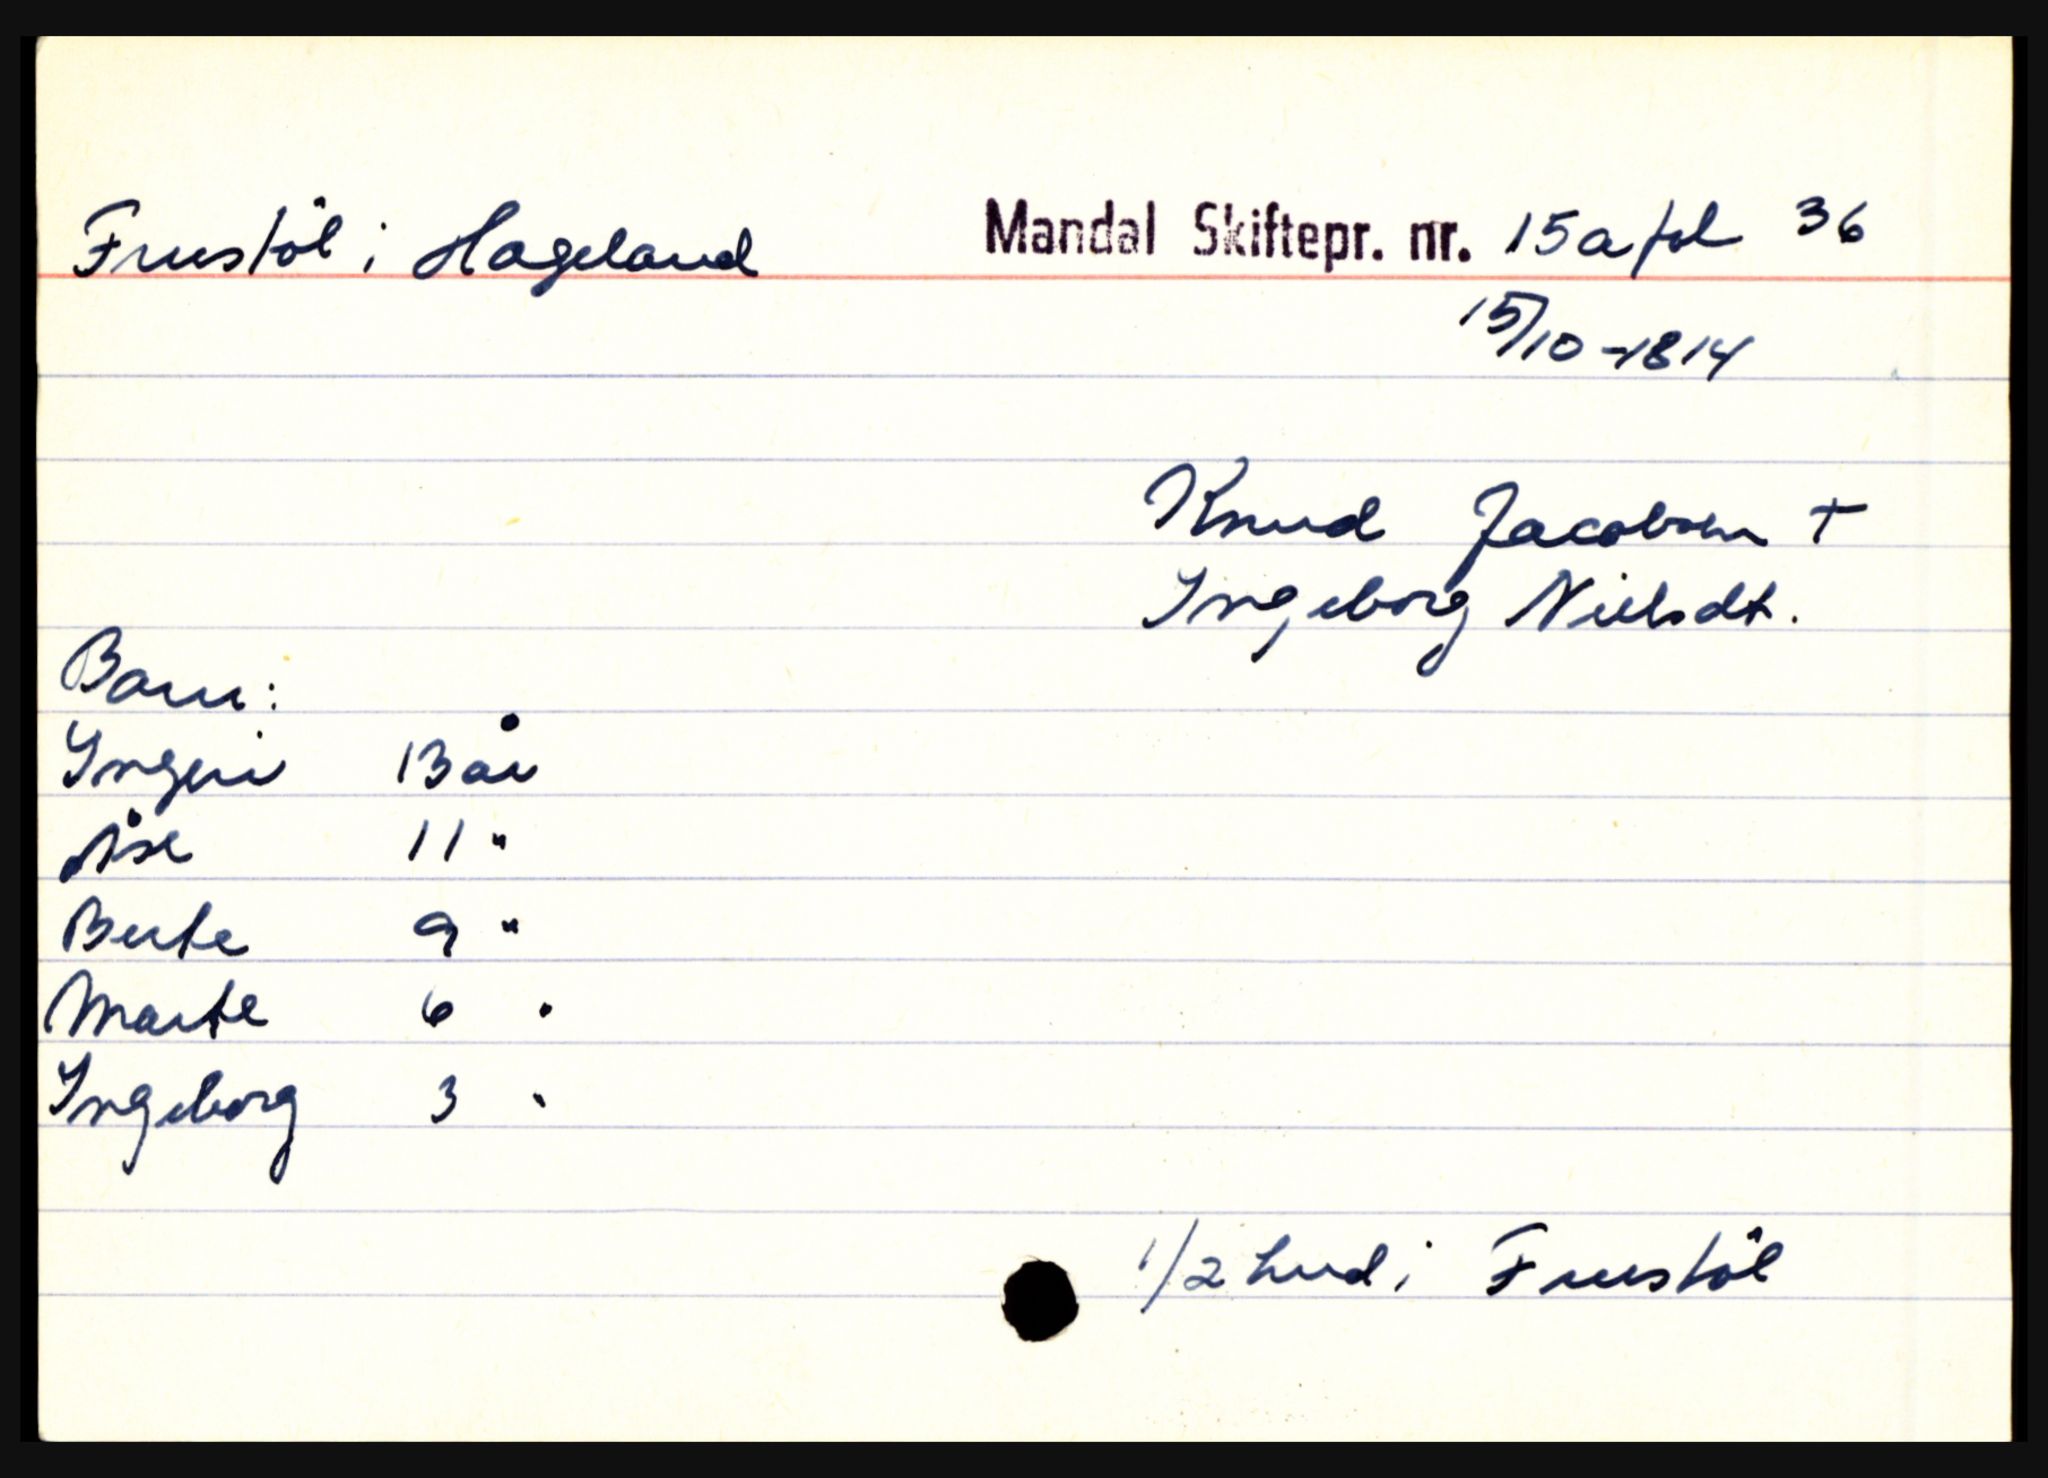 Frustöl i Hageland Mandal Skiftepr. nr. 15a fol 36
15/10-1814
Knud Jacobsen +
Ingeborg Nielsdt.
Barn:
Ingeri 13 år
Åse 11 "
Berte 9 "
Marte 6 "
Ingeborg 3 "
1/2 hud i Frustöl